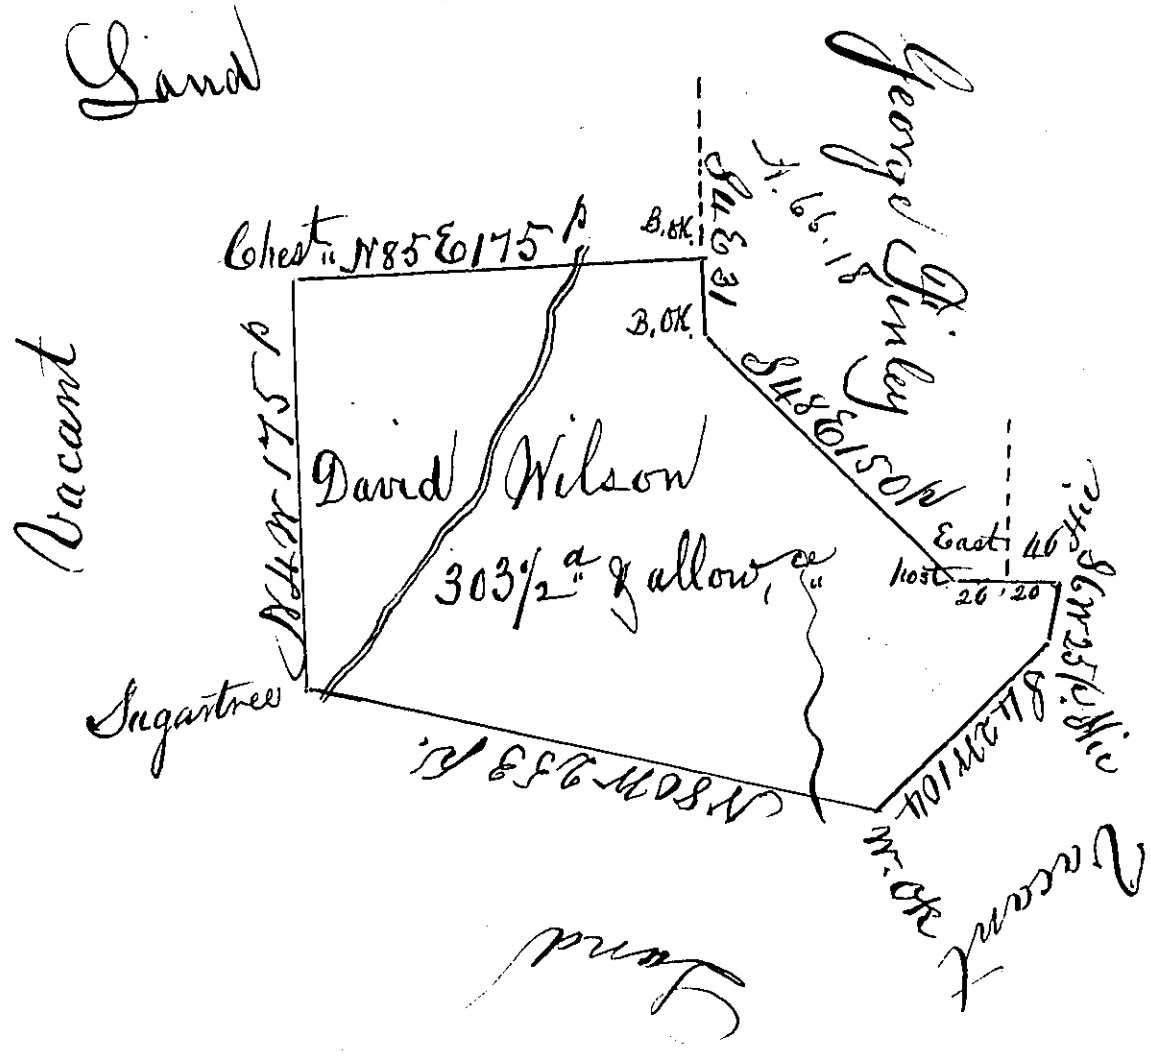 Land
George Finley
A. 66.18
S4E 31
B.OK.
Chest.. N85E175 p
B.OK.
S48E150p
Vacant
N4W 175 p
David Wilson
303 1/2 a.. & allow, ce..
East 46
Hic
post
26 20
S6W25p.
Hic
S42W104
Sugartree
N80W 253 P.
W.OK
Vacant
Land